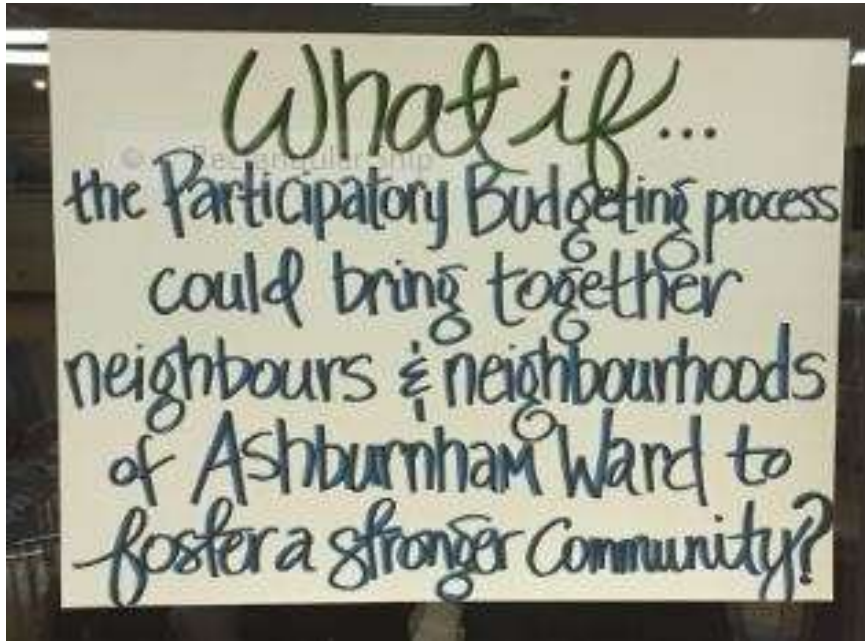 What if...
the Participatory Budgeting process
could bring together
neighbours & neighbourhoods
of Ashburnham Ward to
foster a stronger Community?